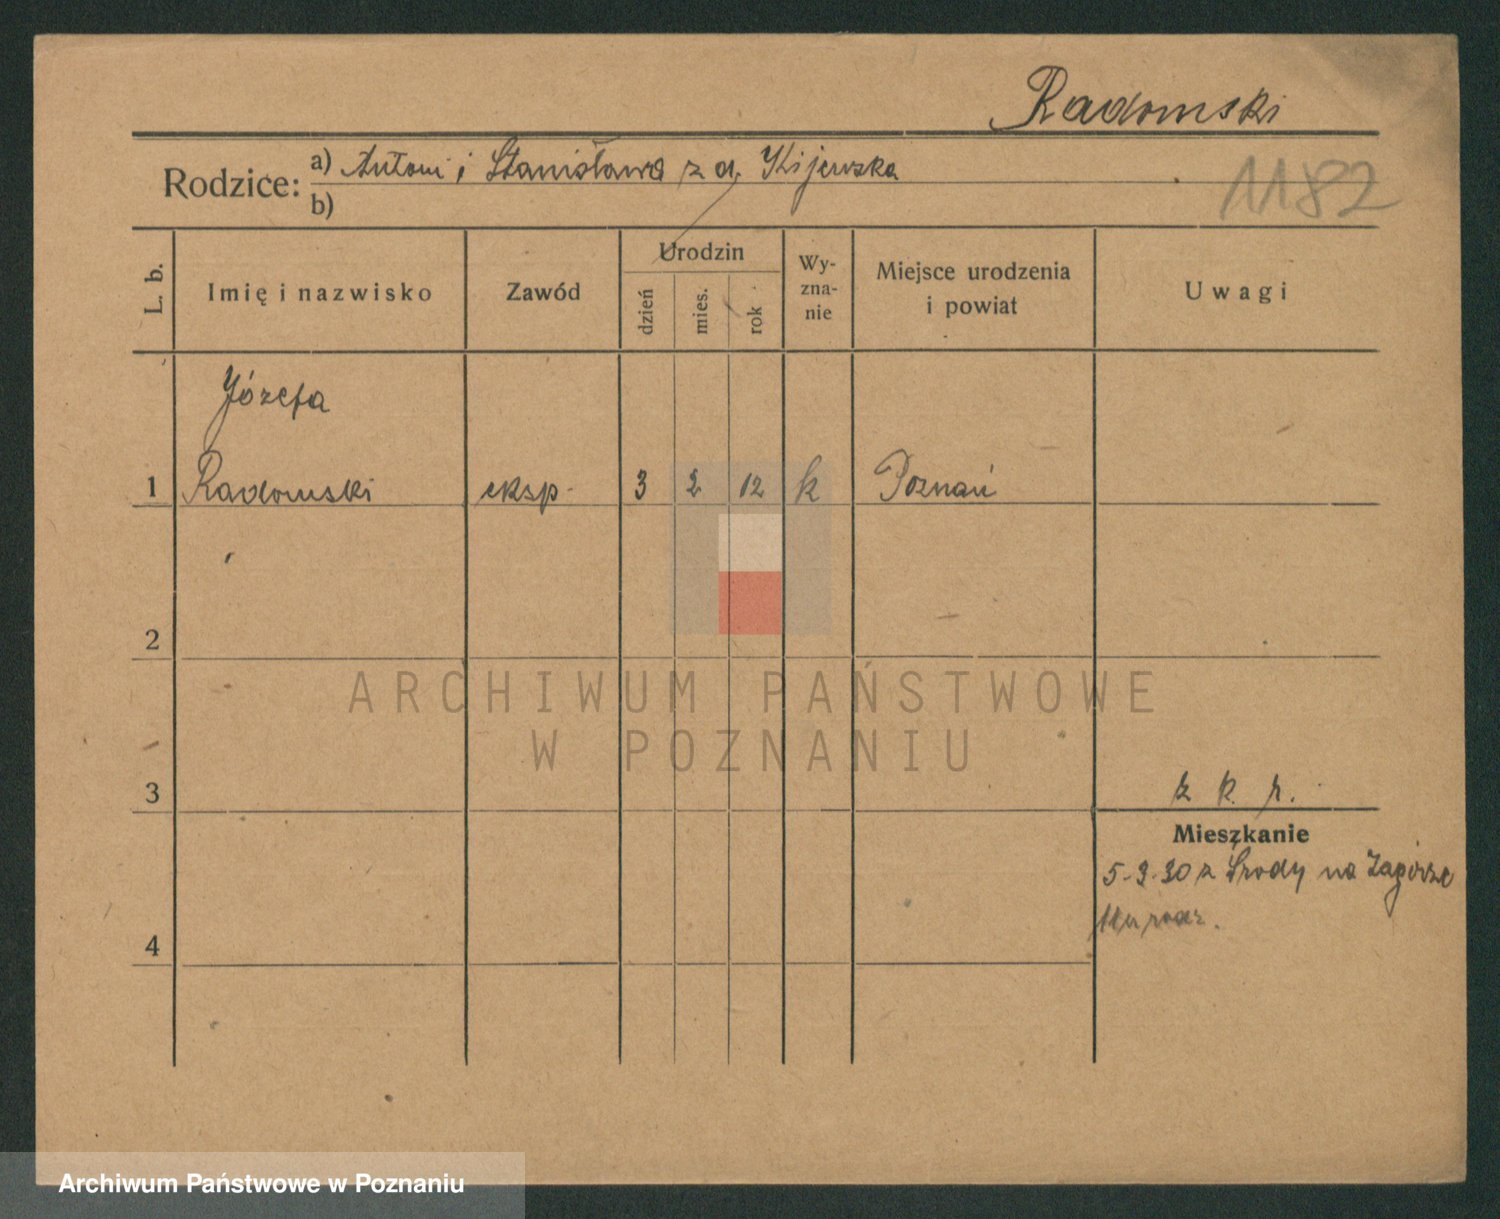 Radomski
Rodzice: a) Antoni i Stanisława z d. Kijewska
b)
1182
L. b.
Imię i nazwisko
Zawód
Urodzin
dzień
mies.
rok
Wy-
zna-
nie
Miejsce urodzenia
i powiat
Uwagi
Józefa
1 Radomski eksp. 3 2 12 k Poznań
2
ARCHIWUM PAŃSTWOWE
W POZNANIU
3
k. p.
Mieszkanie
5-3-30 z Środy na Zagórze
11
4
Archiwum Państwowe w Poznaniu